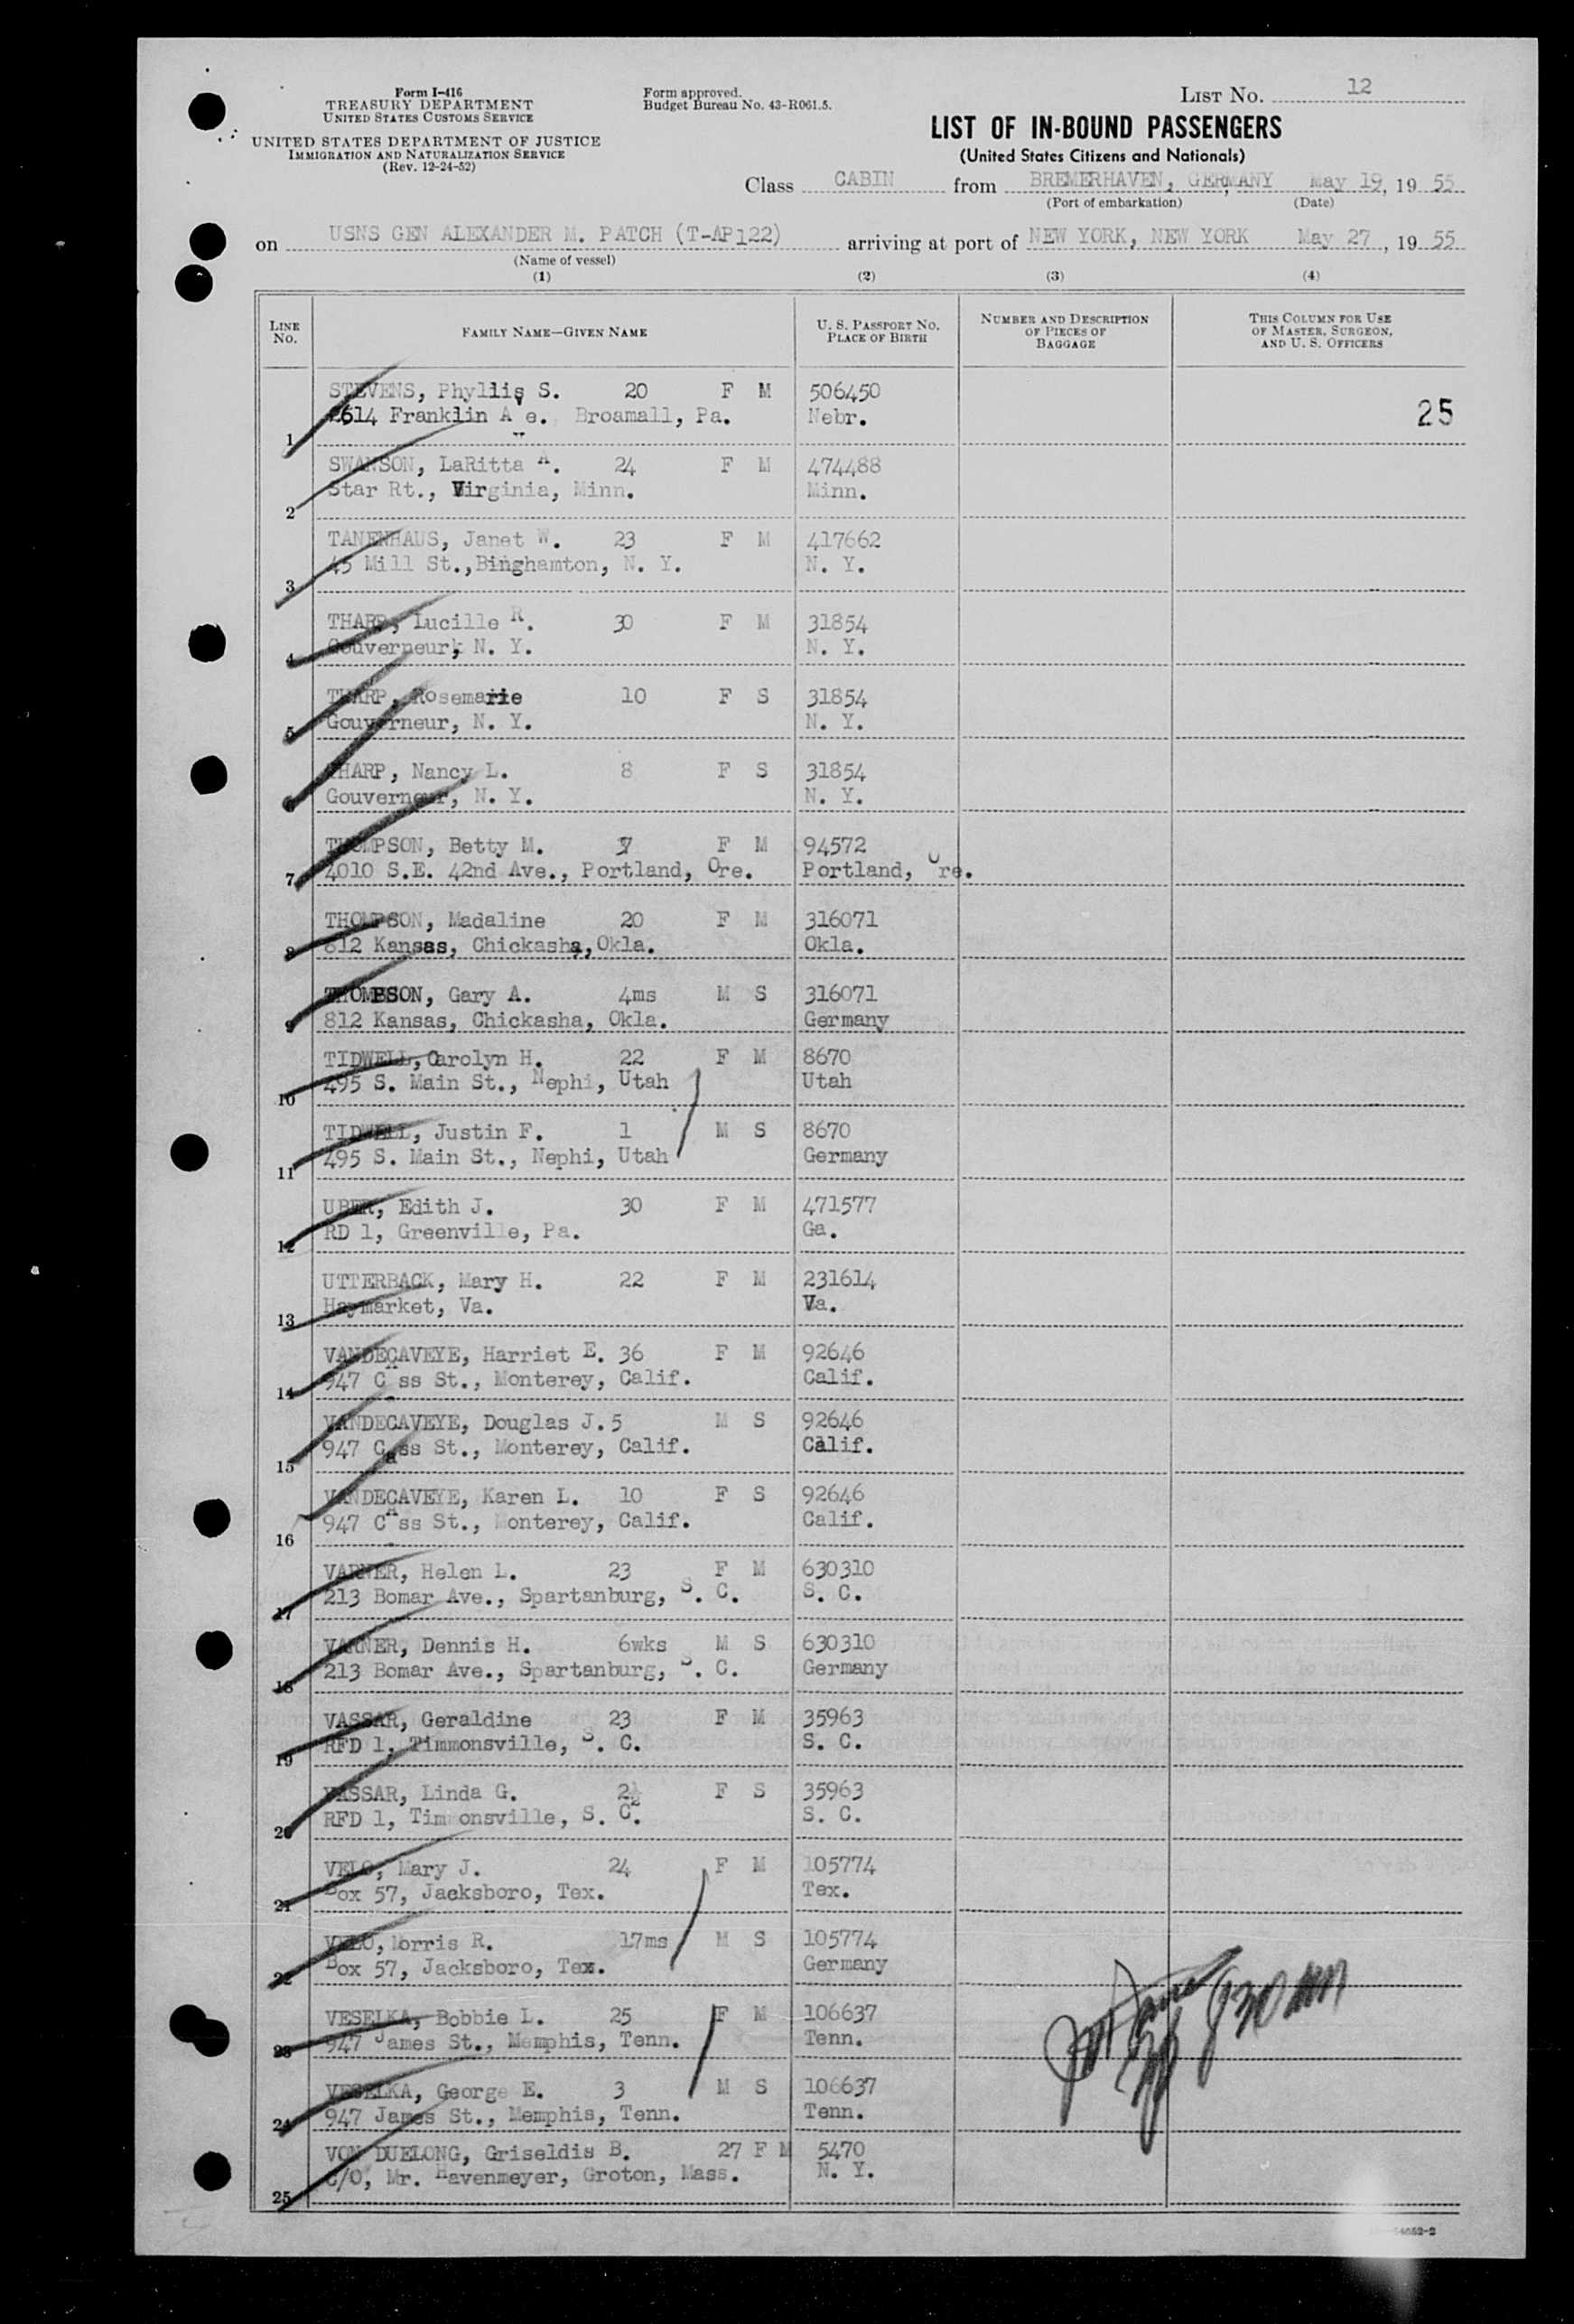 Form I-416
TREASURY DEPARTMENT
UNITED STATES CUSTOMS SERVICE
UNITED STATES DEPARTMENT OF JUSTICE
IMMIGRATION AND NATURALIZATION SERVICE
(Rev. 12-24-52)
Form approved.
Budget Bureau No. 43-R061.5.
LIST NO. 12
LIST OF IN-BOUND PASSENGERS
(United States Citizens and Nationals)
Class CABIN from BREMERHAVEN, GERMANY May 19, 19 55
(Port of embarkation) (Date)
on USNS GEN ALEXANDER M. PATCH (T-AP122) arriving at port of NEW YORK, NEW YORK May 27, 19 55
(Name of vessel)
(1) (2) (3) (4)
LINE NO. FAMILY NAME—GIVEN NAME U. S. PASSPORT NO. PLACE OF BIRTH NUMBER AND DESCRIPTION OF PIECES OF BAGGAGE THIS COLUMN FOR USE OF MASTER, SURGEON, AND U. S. OFFICERS
STEVENS, Phyllis S. 20 F M 506450
1 2614 Franklin Ave. Broamall, Pa. Nebr. 25
SWANSON, LaRitta A. 24 F M 474488
2 Star Rt., Virginia, Minn. Minn.
TANENHAUS, Janet W. 23 F M 417662
3 45 Mill St., Binghamton, N. Y. N. Y.
THARP, Lucille R. 30 F M 31854
4 Gouverneur, N. Y. N. Y.
THARP, Rosemarie 10 F S 31854
5 Gouverneur, N. Y. N. Y.
THARP, Nancy L. 8 F S 31854
6 Gouverneur, N. Y. N. Y.
THOMPSON, Betty M. F M 94572
7 4010 S.E. 42nd Ave., Portland, Ore. Portland, Ore.
THOMPSON, Madaline 20 F M 316071
8 812 Kansas, Chickasha, Okla. Okla.
THOMPSON, Gary A. 4ms M S 316071
9 812 Kansas, Chickasha, Okla. Germany
TIDWELL, Carolyn H. 22 F M 8670
10 495 S. Main St., Nephi, Utah Utah
TIDWELL, Justin F. 1 M S 8670
11 495 S. Main St., Nephi, Utah Germany
UBER, Edith J. 30 F M 471577
12 RD 1, Greenville, Pa. Ga.
UTTERBACK, Mary H. 22 F M 231614
13 Haymarket, Va. Va.
VANDECAVEYE, Harriet E. 36 F M 92646
14 947 Cass St., Monterey, Calif. Calif.
VANDECAVEYE, Douglas J. 5 M S 92646
15 947 Cass St., Monterey, Calif. Calif.
VANDECAVEYE, Karen L. 10 F S 92646
16 947 Cass St., Monterey, Calif. Calif.
VARNER, Helen L. 23 F M 630310
17 213 Bomar Ave., Spartanburg, S. C. S. C.
VARNER, Dennis H. 6wks M S 630310
18 213 Bomar Ave., Spartanburg, S. C. Germany
VASSAR, Geraldine 23 F M 35963
19 RFD 1, Timmonsville, S. C. S. C.
VASSAR, Linda G. 2½ F S 35963
20 RFD 1, Timmonsville, S. C. S. C.
VELO, Mary J. 24 F M 105774
21 Box 57, Jacksboro, Tex. Tex.
VELO, Morris R. 17ms M S 105774
22 Box 57, Jacksboro, Tex. Germany
VESELKA, Bobbie L. 25 F M 106637
23 947 James St., Memphis, Tenn. Tenn.
VESELKA, George E. 3 M S 106637
24 947 James St., Memphis, Tenn. Tenn.
VON DUELONG, Griseldis B. 27 F M 5470
25 C/O, Mr. Havenmeyer, Groton, Mass. N. Y.